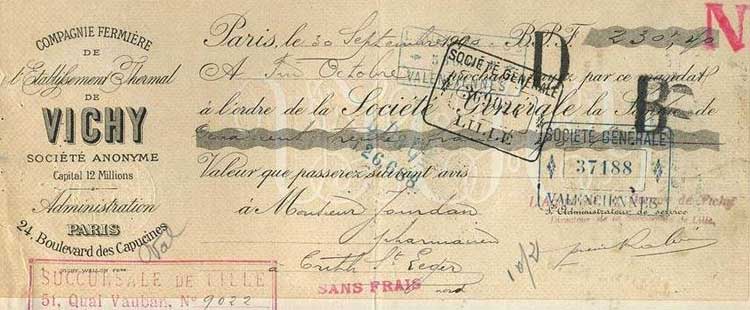 COMPAGNIE FERMIÈRE
DE
l'Etablissement Thermal
DE
VICHY
SOCIÉTÉ ANONYME
Capital 12 Millions
Administration
PARIS
24, Boulevard des Capucines
Val
SUCCURSALE DE LILLE
51, Quai Vauban, Nº 9022
Paris, le 30 Septembre B.P.F. 230,40
A Fin Octobre prochain payez par ce mandat
à l'ordre de la Société Générale la Somme de
Valeur que passerez suivant avis
à Monsieur Jourdan
pharmacien
à Crith St Leger
nord
SANS FRAIS
VALENCIENNES
SOCIÉTÉ GÉNÉRALE
LILLE
D
B
N
SOCIÉTÉ GÉNÉRALE
37188
VALENCIENNES
L'Administrateur de service